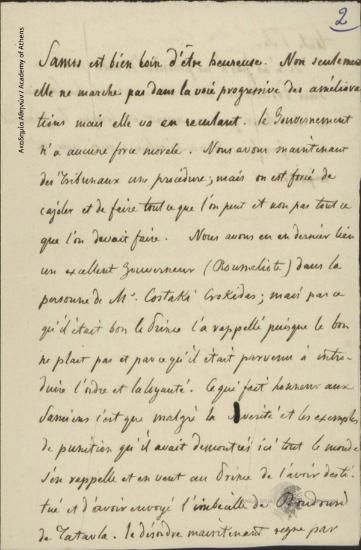 2
Ακαδημία Αθηνών / Academy of Athens
Samos est bien loin d'être heureuse. Non seulement
elle ne marche pas dans la voie progressive des améliora
tions mais elle va en reculant. le Gouvernement
n'a aucune force morale. Nous avons maintenant
des Tribunaux une procédure; mais on est forcé de
cajoler et de faire tout ce que l'on peut et non pas tout ce
que l'on devait faire. Nous avons eu en dernier lieu
un excellent Gouverneur (Roumeliote) dans la
personne de Mr. Costaki Crokidas; mais par ce
qu'il était bon le Prince l'a rappellé puisque le bon
ne plait pas et parce qu'il était parvenu à intro-
duire l'ordre et la loyauté. Ce qui fait honneur aux
Samiens c'est que malgré la severité et les exemples
de punition qu'il avait demontrés ici tout le monde
s'en rappelle et en veut au Prince de l'avoir desti-
tué et d'avoir envoyé l'imbecille de
de Tatavla. le désordre maintenant regne par